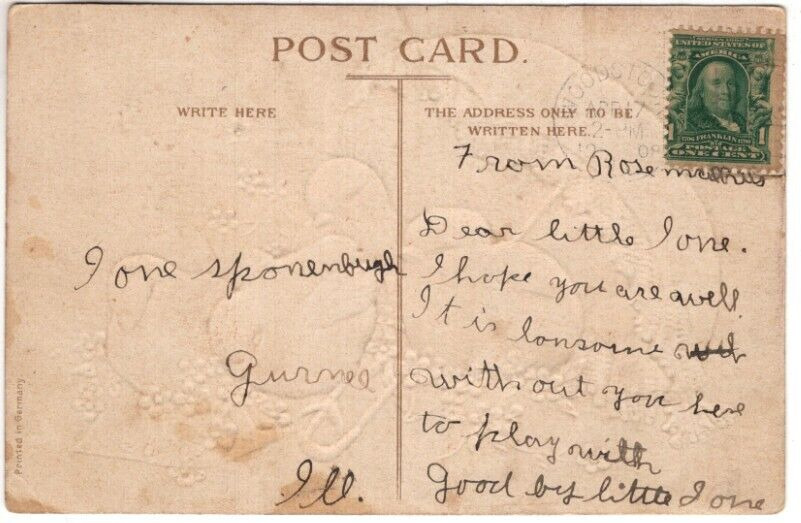 POST CARD.
WRITE HERE
THE ADDRESS ONLY TO BE
WRITTEN HERE.
SERIES 1902
UNITED STATES OF
AMERICA
1 FRANKLIN 1
POSTAGE
ONE CENT
APR 17
2-PM
08
From Rose
I one sponenbugh
Gurnee
Ill.
Dear little I one.
I hope you are well.
It is lonsome
without you here
to play with
Good by little I one
Printed in Germany